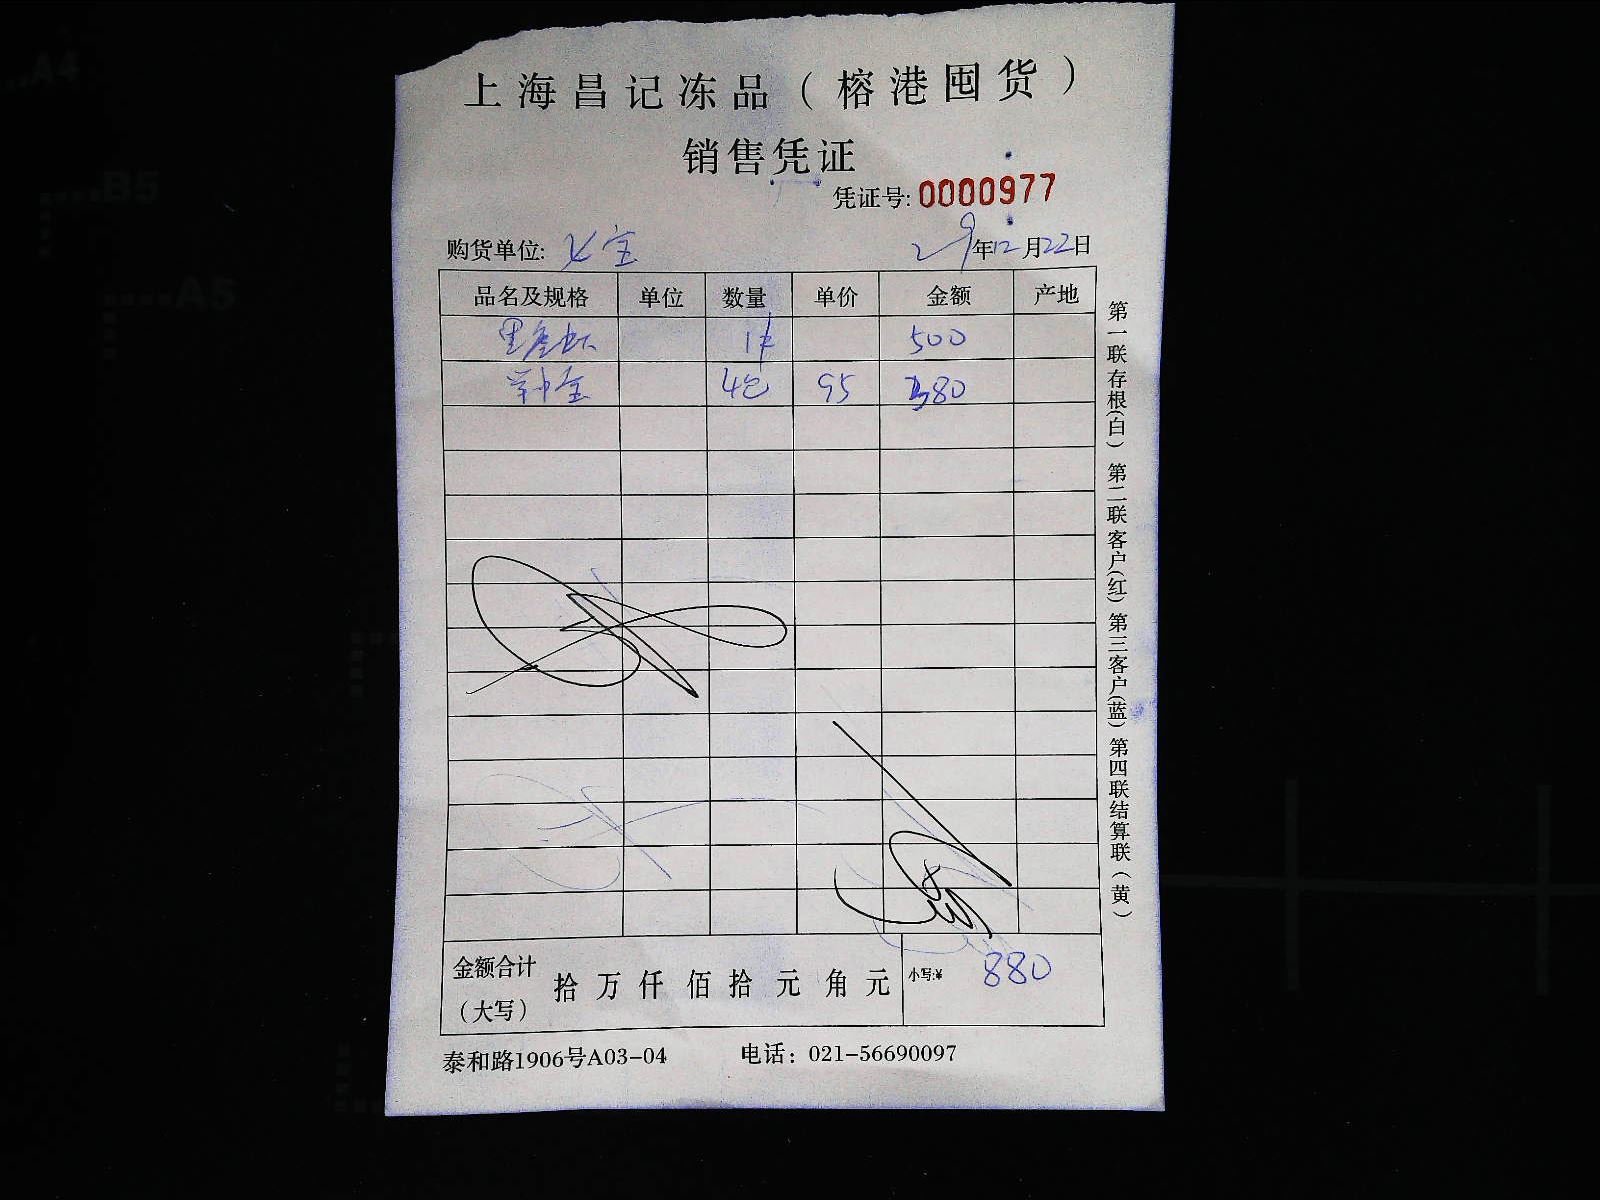 上海昌记冻品（榕港囤货）
销售凭证
凭证号: 0000977
购货单位:
年12月22日
品名及规格 单位 数量 单价 金额 产地
500
4包 95 380
金额合计（大写） 拾 万 仟 佰 拾 元 角 元 小写:¥ 880
泰和路1906号A03-04 电话：021-56690097
第一联存根(白) 第二联客户(红) 第三客户(蓝) 第四联结算联(黄)
A4
B5
A5